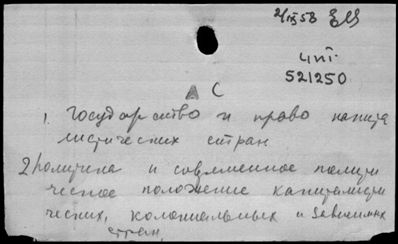 2/IX 58
ЧИТ.
521250
С
1. Государство и право капита
листических стран
2) Политика и современное полити
ческое положение капиталисти
ческих, колониальных и зависимых
стран.